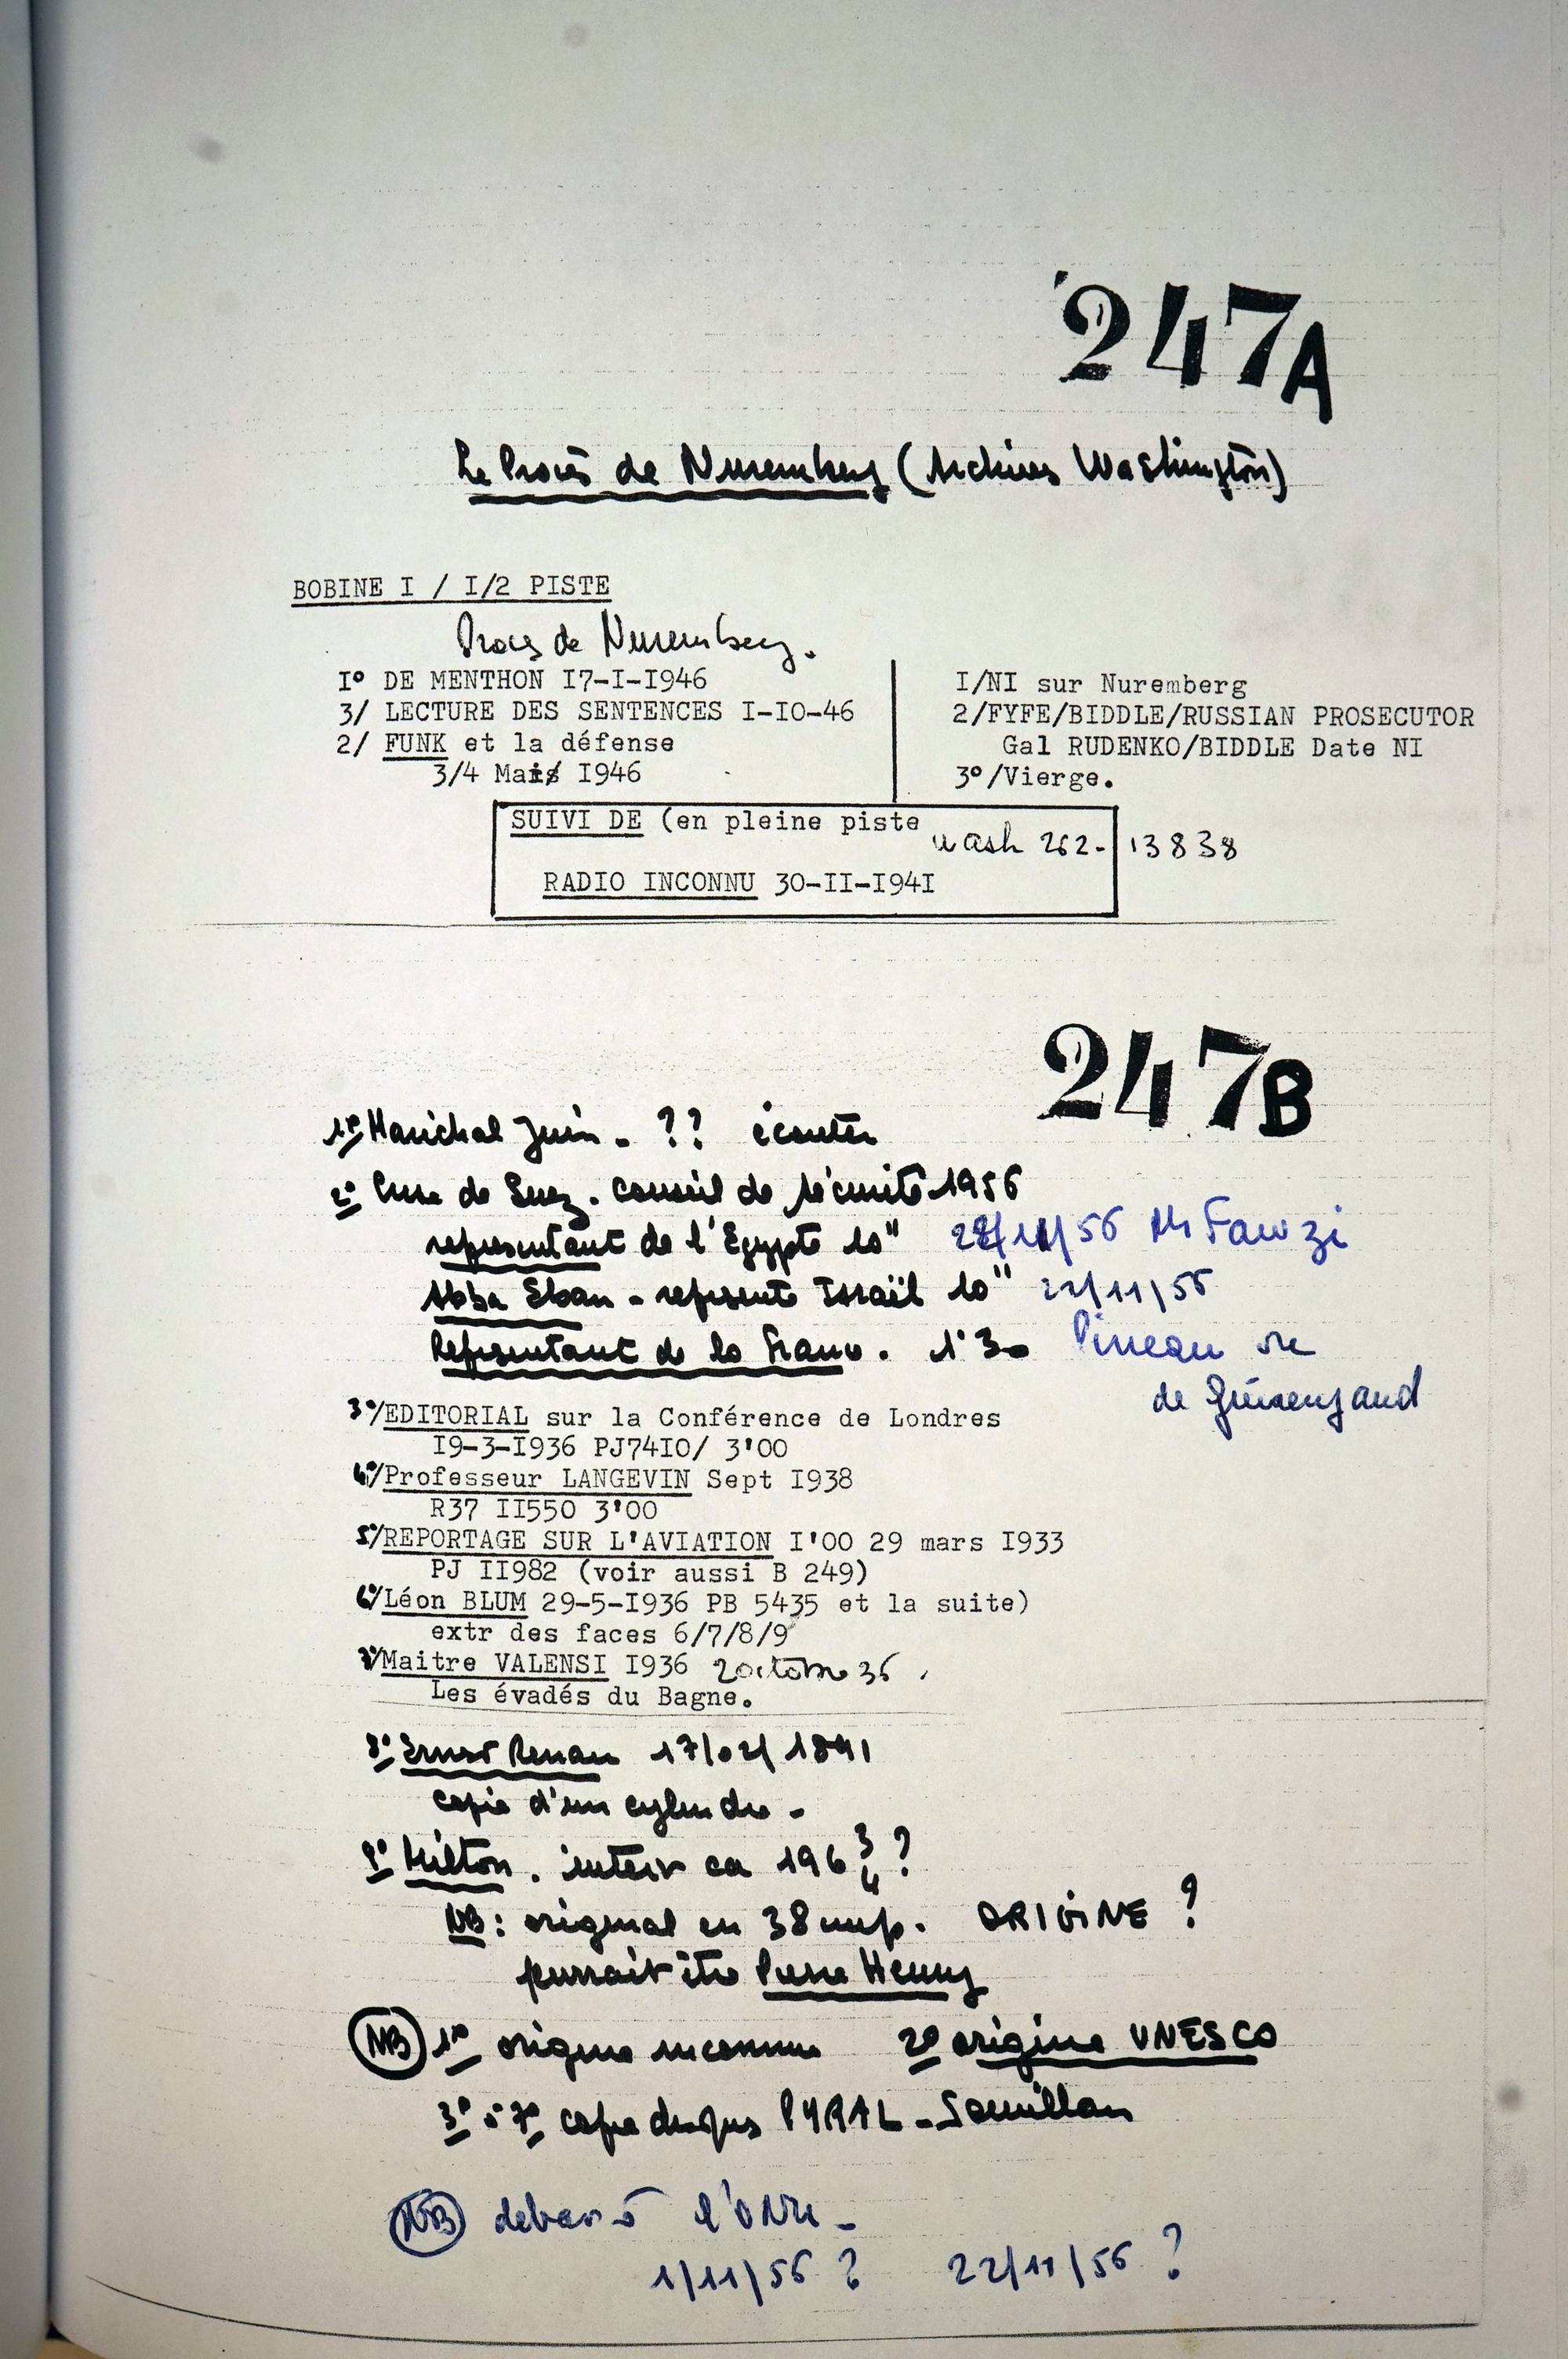 247A
Le Procès de Nuremberg (Archives Washington)
BOBINE I / I/2 PISTE
Procès de Nuremberg.
I° DE MENTHON I7-I-I946
3/ LECTURE DES SENTENCES I-IO-46
2/ FUNK et la défense
3/4 Mai I946
I/NI sur Nuremberg
2/FYFE/BIDDLE/RUSSIAN PROSECUTOR
Gal RUDENKO/BIDDLE Date NI
3°/Vierge.
SUIVI DE (en pleine piste
wash 262-13838
RADIO INCONNU 30-II-I94I
247B
1° Maréchal Juin - ?? écouter
2° Crise de Suez. Conseil de sécurité 1956
représentant de l'Egypte 10" /11/56 Mr Fawzi
Abba Eban - représente Israël 10" 22/11/56
Représentant de la France. 1'30 Pineau ou
de Guiringaud
3°/EDITORIAL sur la Conférence de Londres
I9-3-I936 PJ74IO/ 3'OO
4°/Professeur LANGEVIN Sept I938
R37 II550 3'OO
5°/REPORTAGE SUR L'AVIATION I'OO 29 mars I933
PJ II982 (voir aussi B 249)
6°/Léon BLUM 29-5-I936 PB 5435 et la suite)
extr des faces 6/7/8/9
7°/Maitre VALENSI I936 2 octobre 36
Les évadés du Bagne.
8° Ernest Renan 17/02/1891
copie d'un cylindre -
9° Milton. interv ca 196 3/4 ?
NB: original en 38 cm/s. ORIGINE ?
pourrait être Pierre Henry
NB 1° origine inconnue 2° origine UNESCO
3° à 7° copie disques PYRAL -
NB debat à l'ONU -
1/11/56 ? 22/11/56 ?